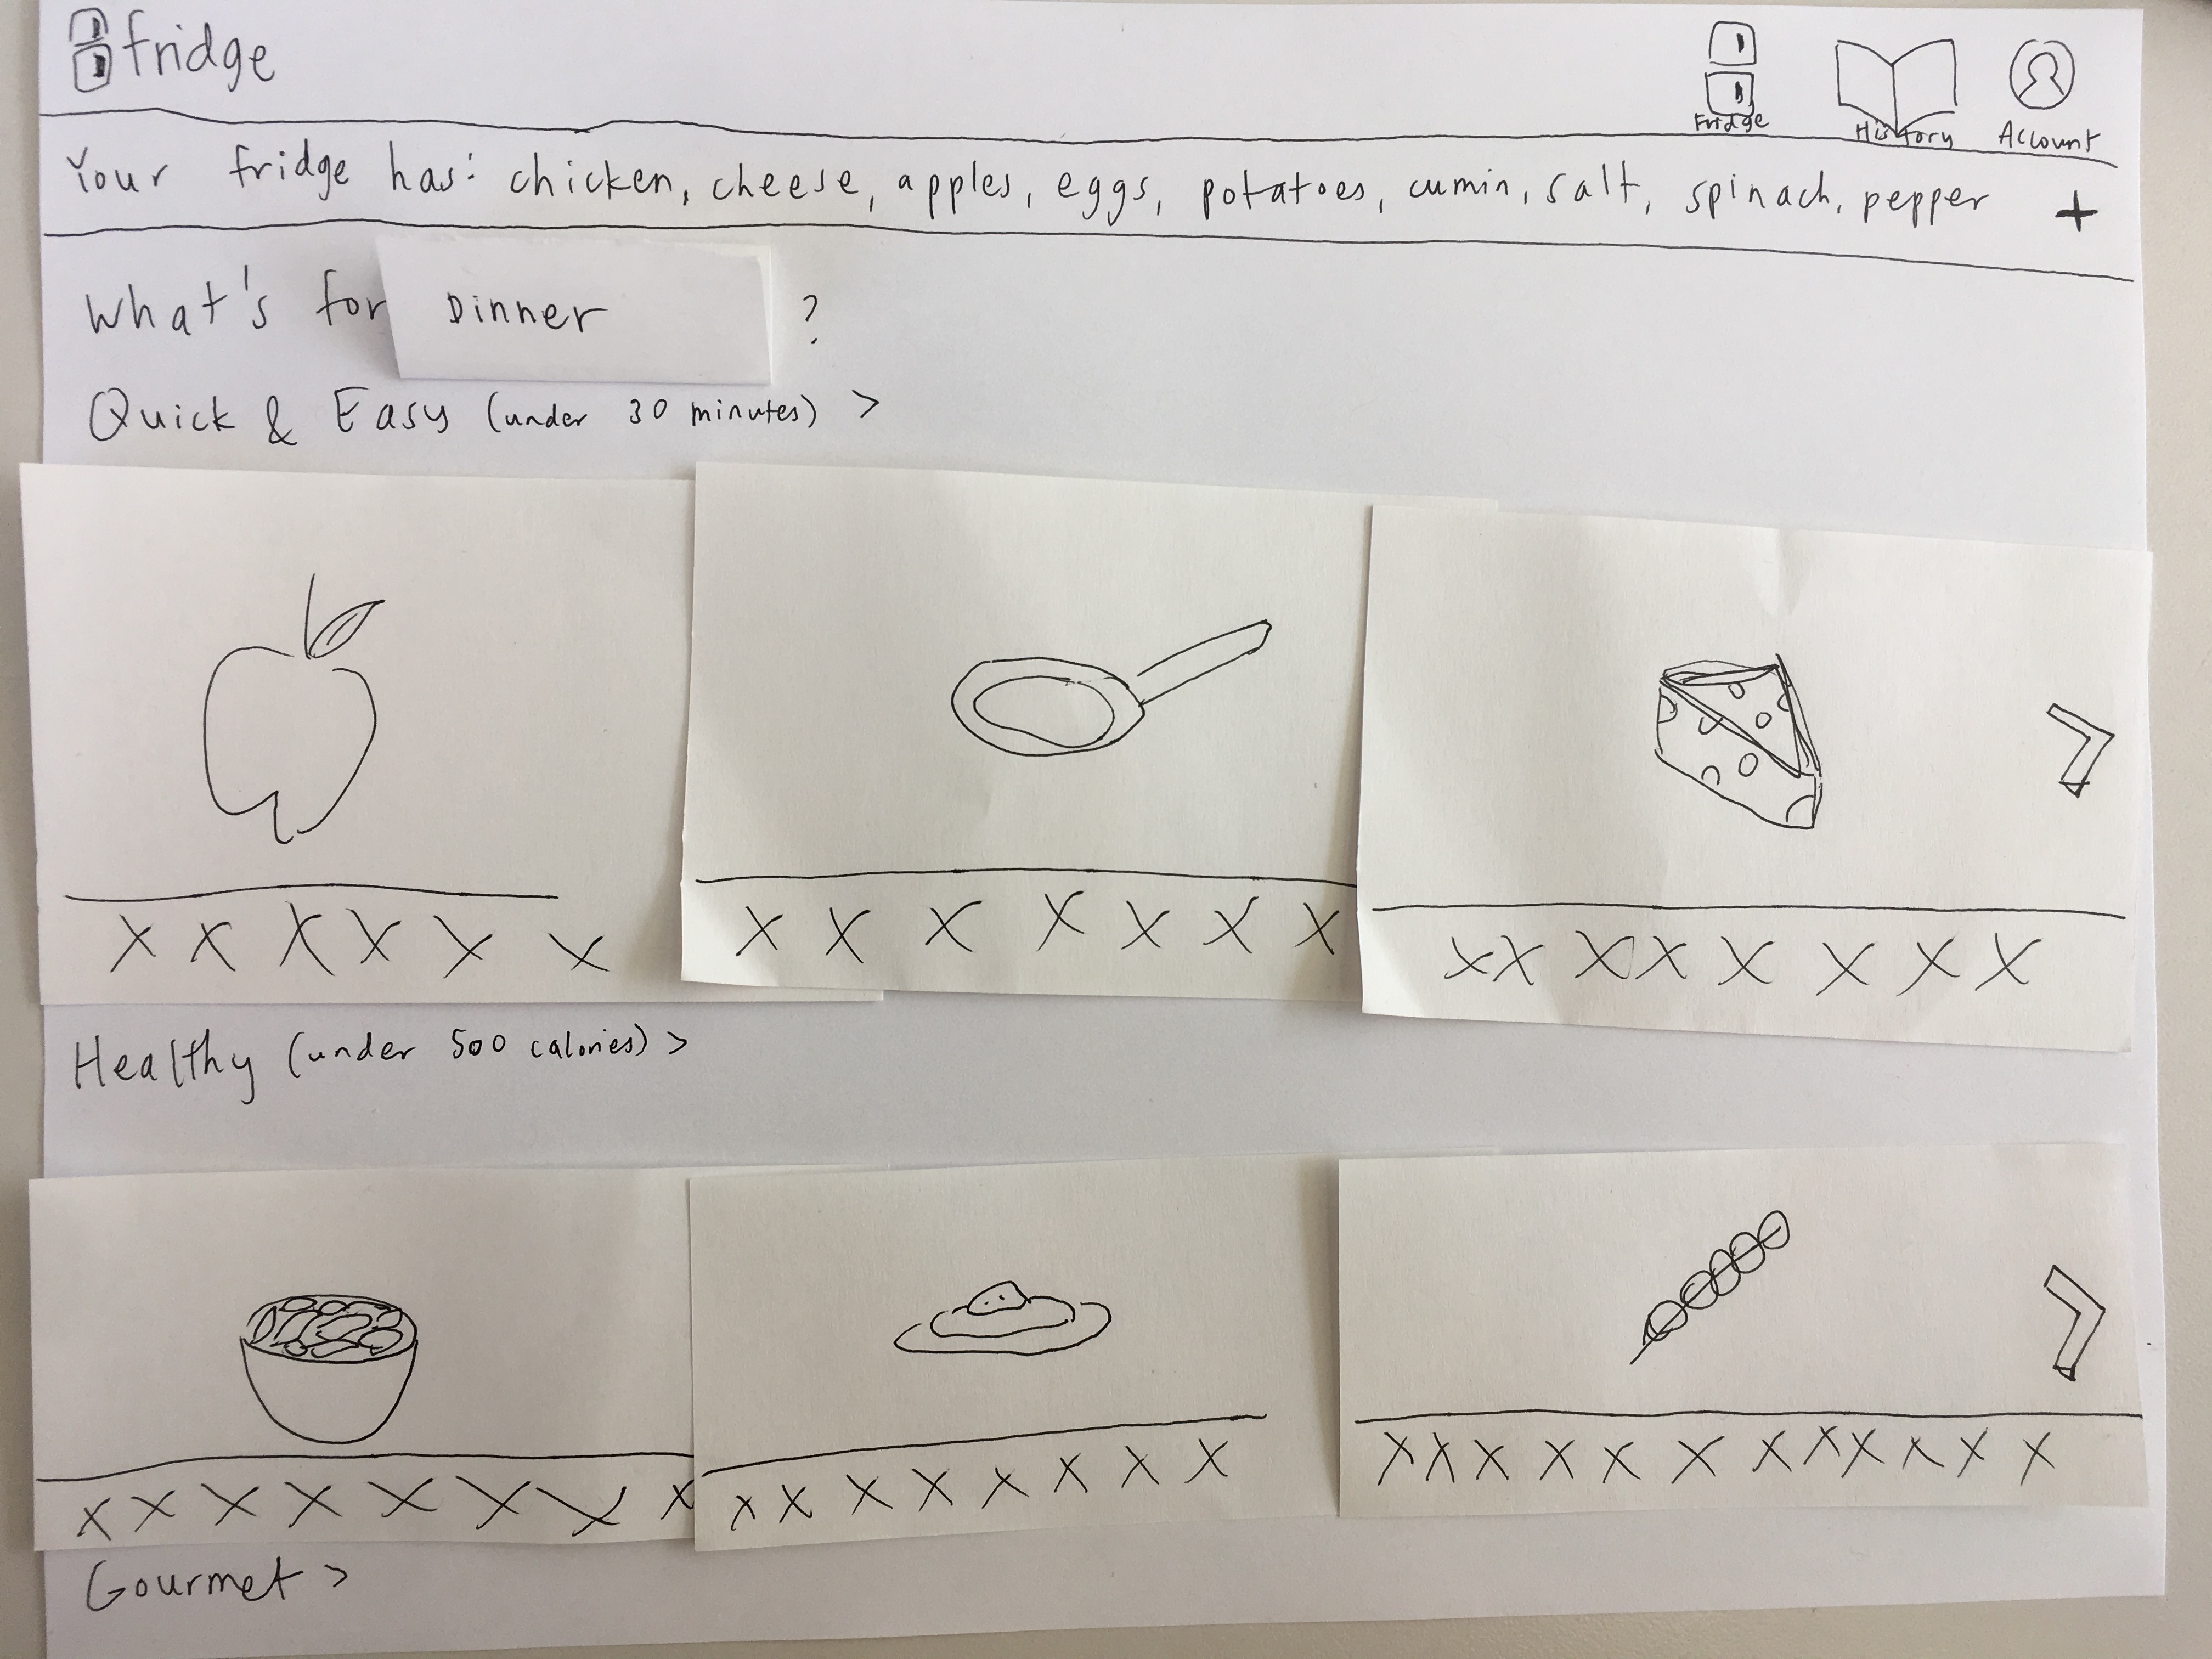 fridge
Fridge History Account
Your fridge has: chicken, cheese, apples, eggs, potatoes, cumin, salt, spinach, pepper +
What's for Dinner ?
Quick & Easy (under 30 minutes) >
X X X X X X
X X X X X X X
XX XX X X X X
Healthy (under 500 calories) >
X X X X X X X X
X X X X X X X X
X X X X X X X X X X X X
Gourmet >